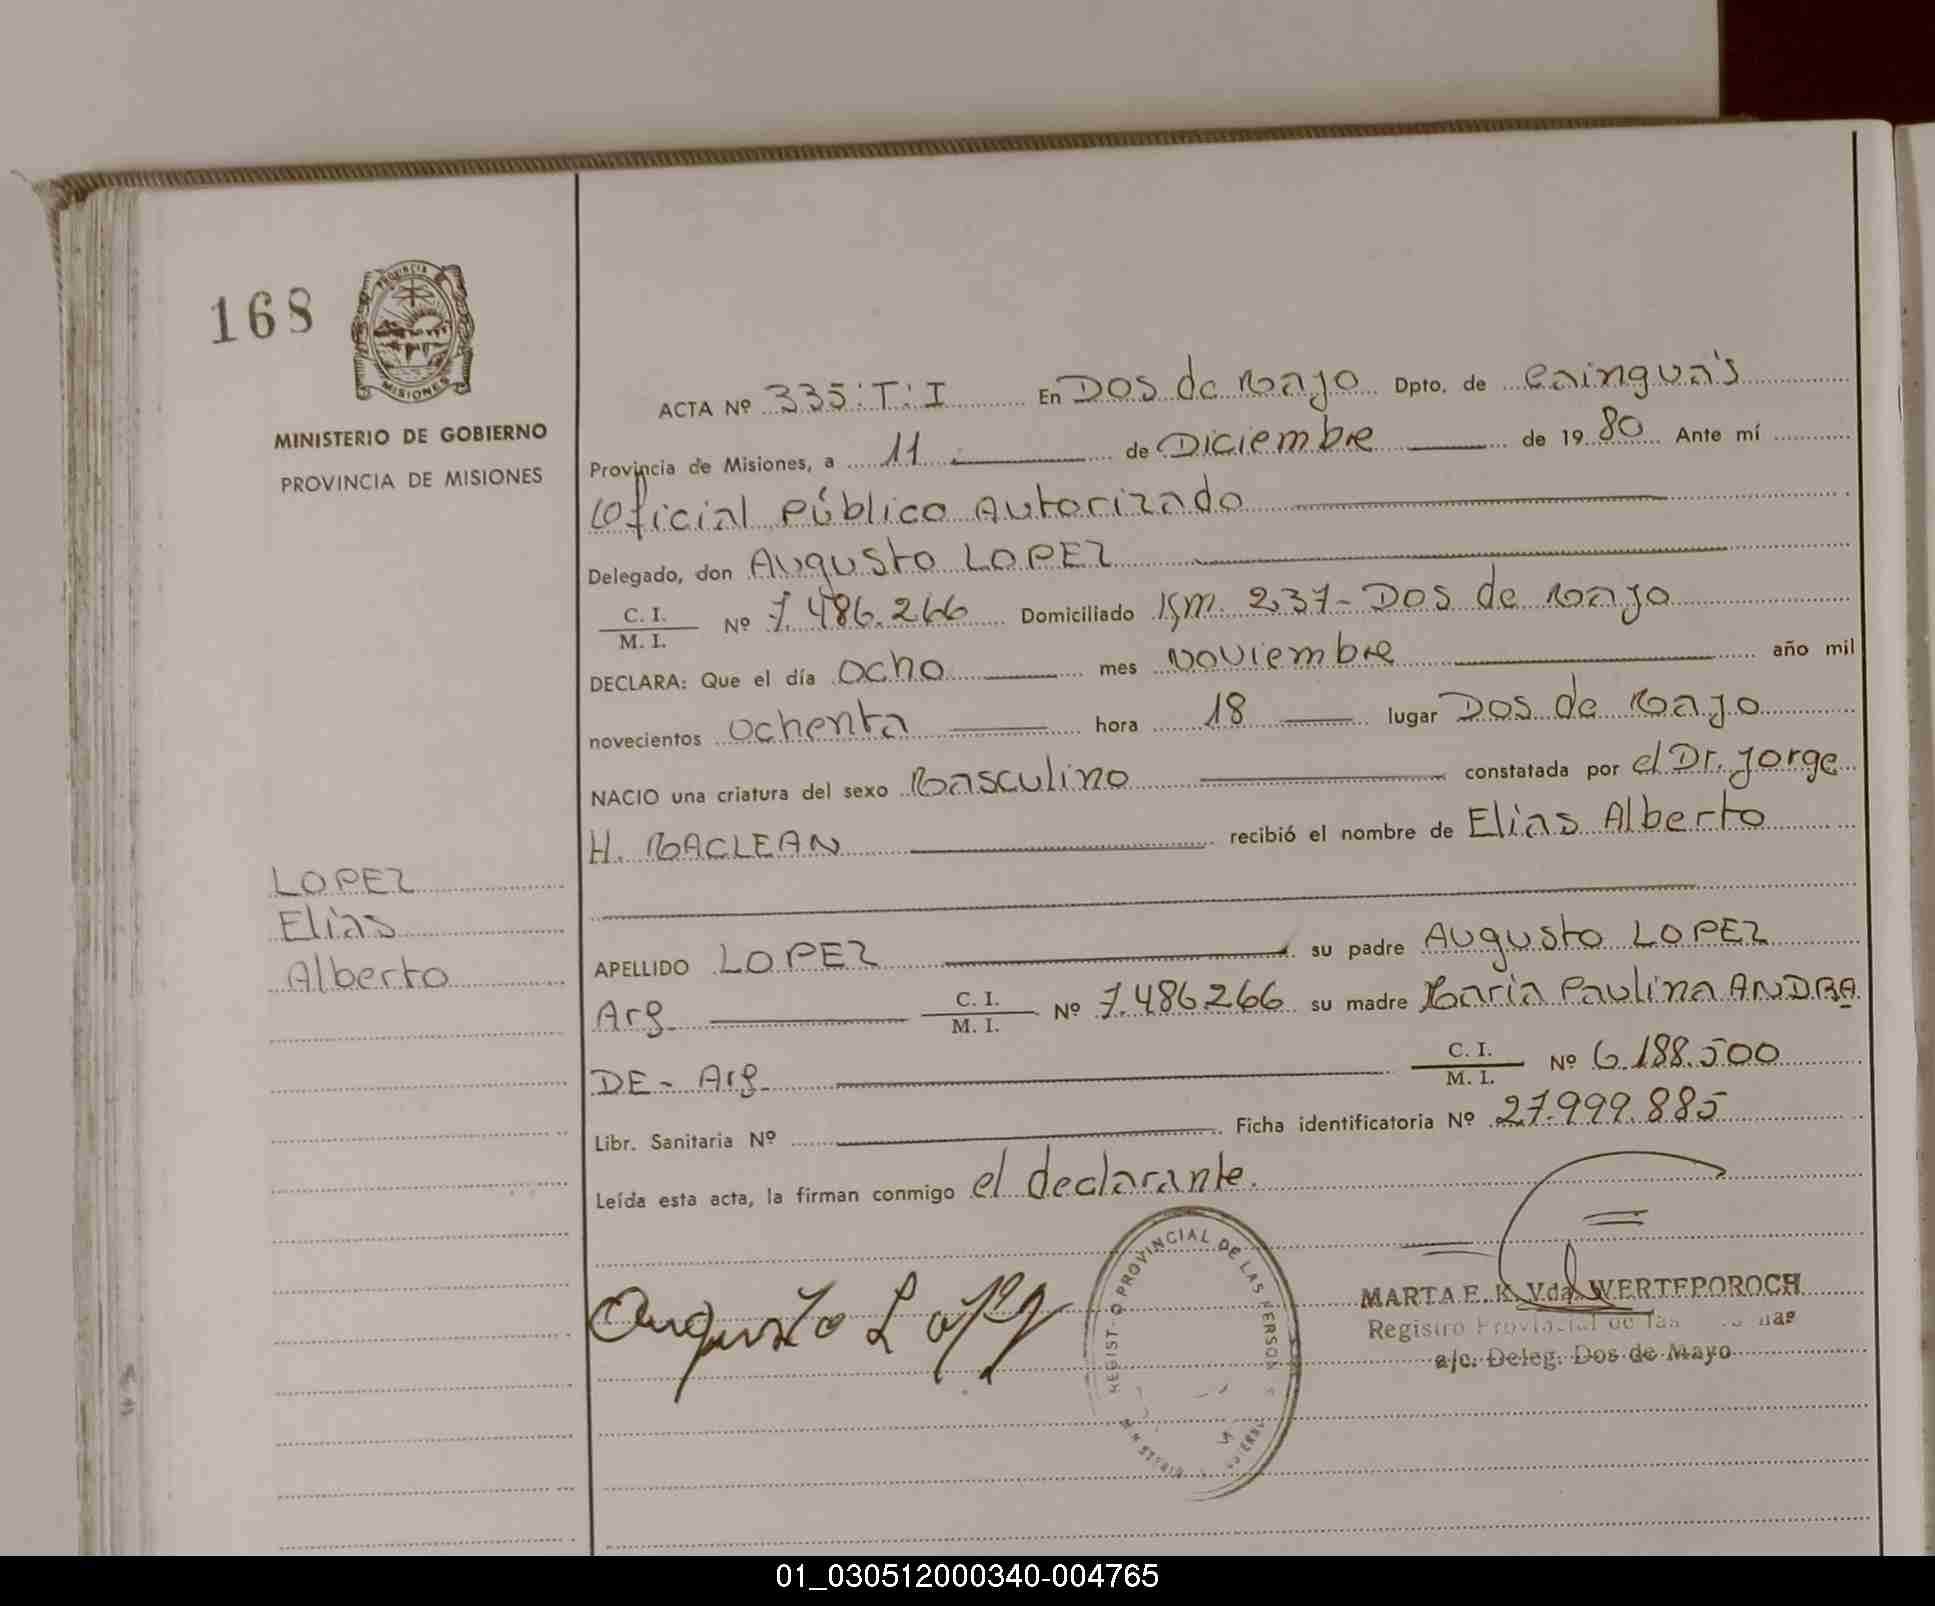 168
PROVINCIA
MISIONES
MINISTERIO DE GOBIERNO
PROVINCIA DE MISIONES
ACTA Nº 335:T:I En Dos de Mayo Dpto. de Cainguás
Provincia de Misiones, a 11 de Diciembre de 1980 Ante mí
Oficial Público Autorizado
Delegado, don Augusto LOPEZ
C. I.
M. I. Nº 7.486.266 Domiciliado Km. 237- Dos de Mayo
DECLARA: Que el día ocho mes noviembre año mil
novecientos ochenta hora 18 lugar Dos de Mayo
NACIO una criatura del sexo Masculino constatada por el Dr. Jorge
H. MACLEAN recibió el nombre de Elias Alberto
LOPEZ
Elias
Alberto
APELLIDO LOPEZ su padre Augusto LOPEZ
Arg C. I.
M. I. Nº 7.486.266 su madre Maria Paulina ANDRA
DE - Arg C. I.
M. I. Nº 6.188.500
Libr. Sanitaria Nº Ficha identificatoria Nº 27.999.885
Leída esta acta, la firman conmigo el declarante.
Augusto Lopez
PROVINCIAL DE LAS PERSON
MARTA E. K. Vda. WERTEPOROCH
Registro Provincial de las
a/c. Deleg. Dos de Mayo
01_030512000340-004765